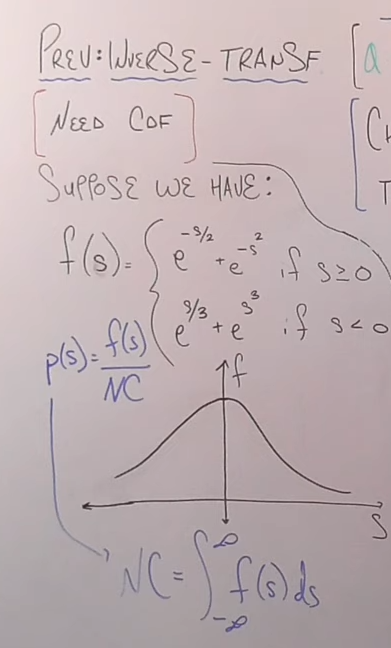 PREV: INVERSE-TRANSF
[NEED CDF]
SUPPOSE WE HAVE:
f(s) = { e^{-s/2} + e^{-s^2} if s ≥ 0
e^{s/3} + e^{s^3} if s < 0
p(s) = f(s)/NC
f
S
NC = ∫_{-∞}^{∞} f(s) ds